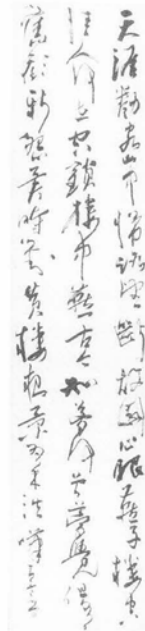 天涯倦客山中歸路望斷故園心眼燕子樓空
佳人何在空鎖樓中燕古今如夢何曾夢覺但有
舊歡新怨異時對黃樓夜景為余浩嘆